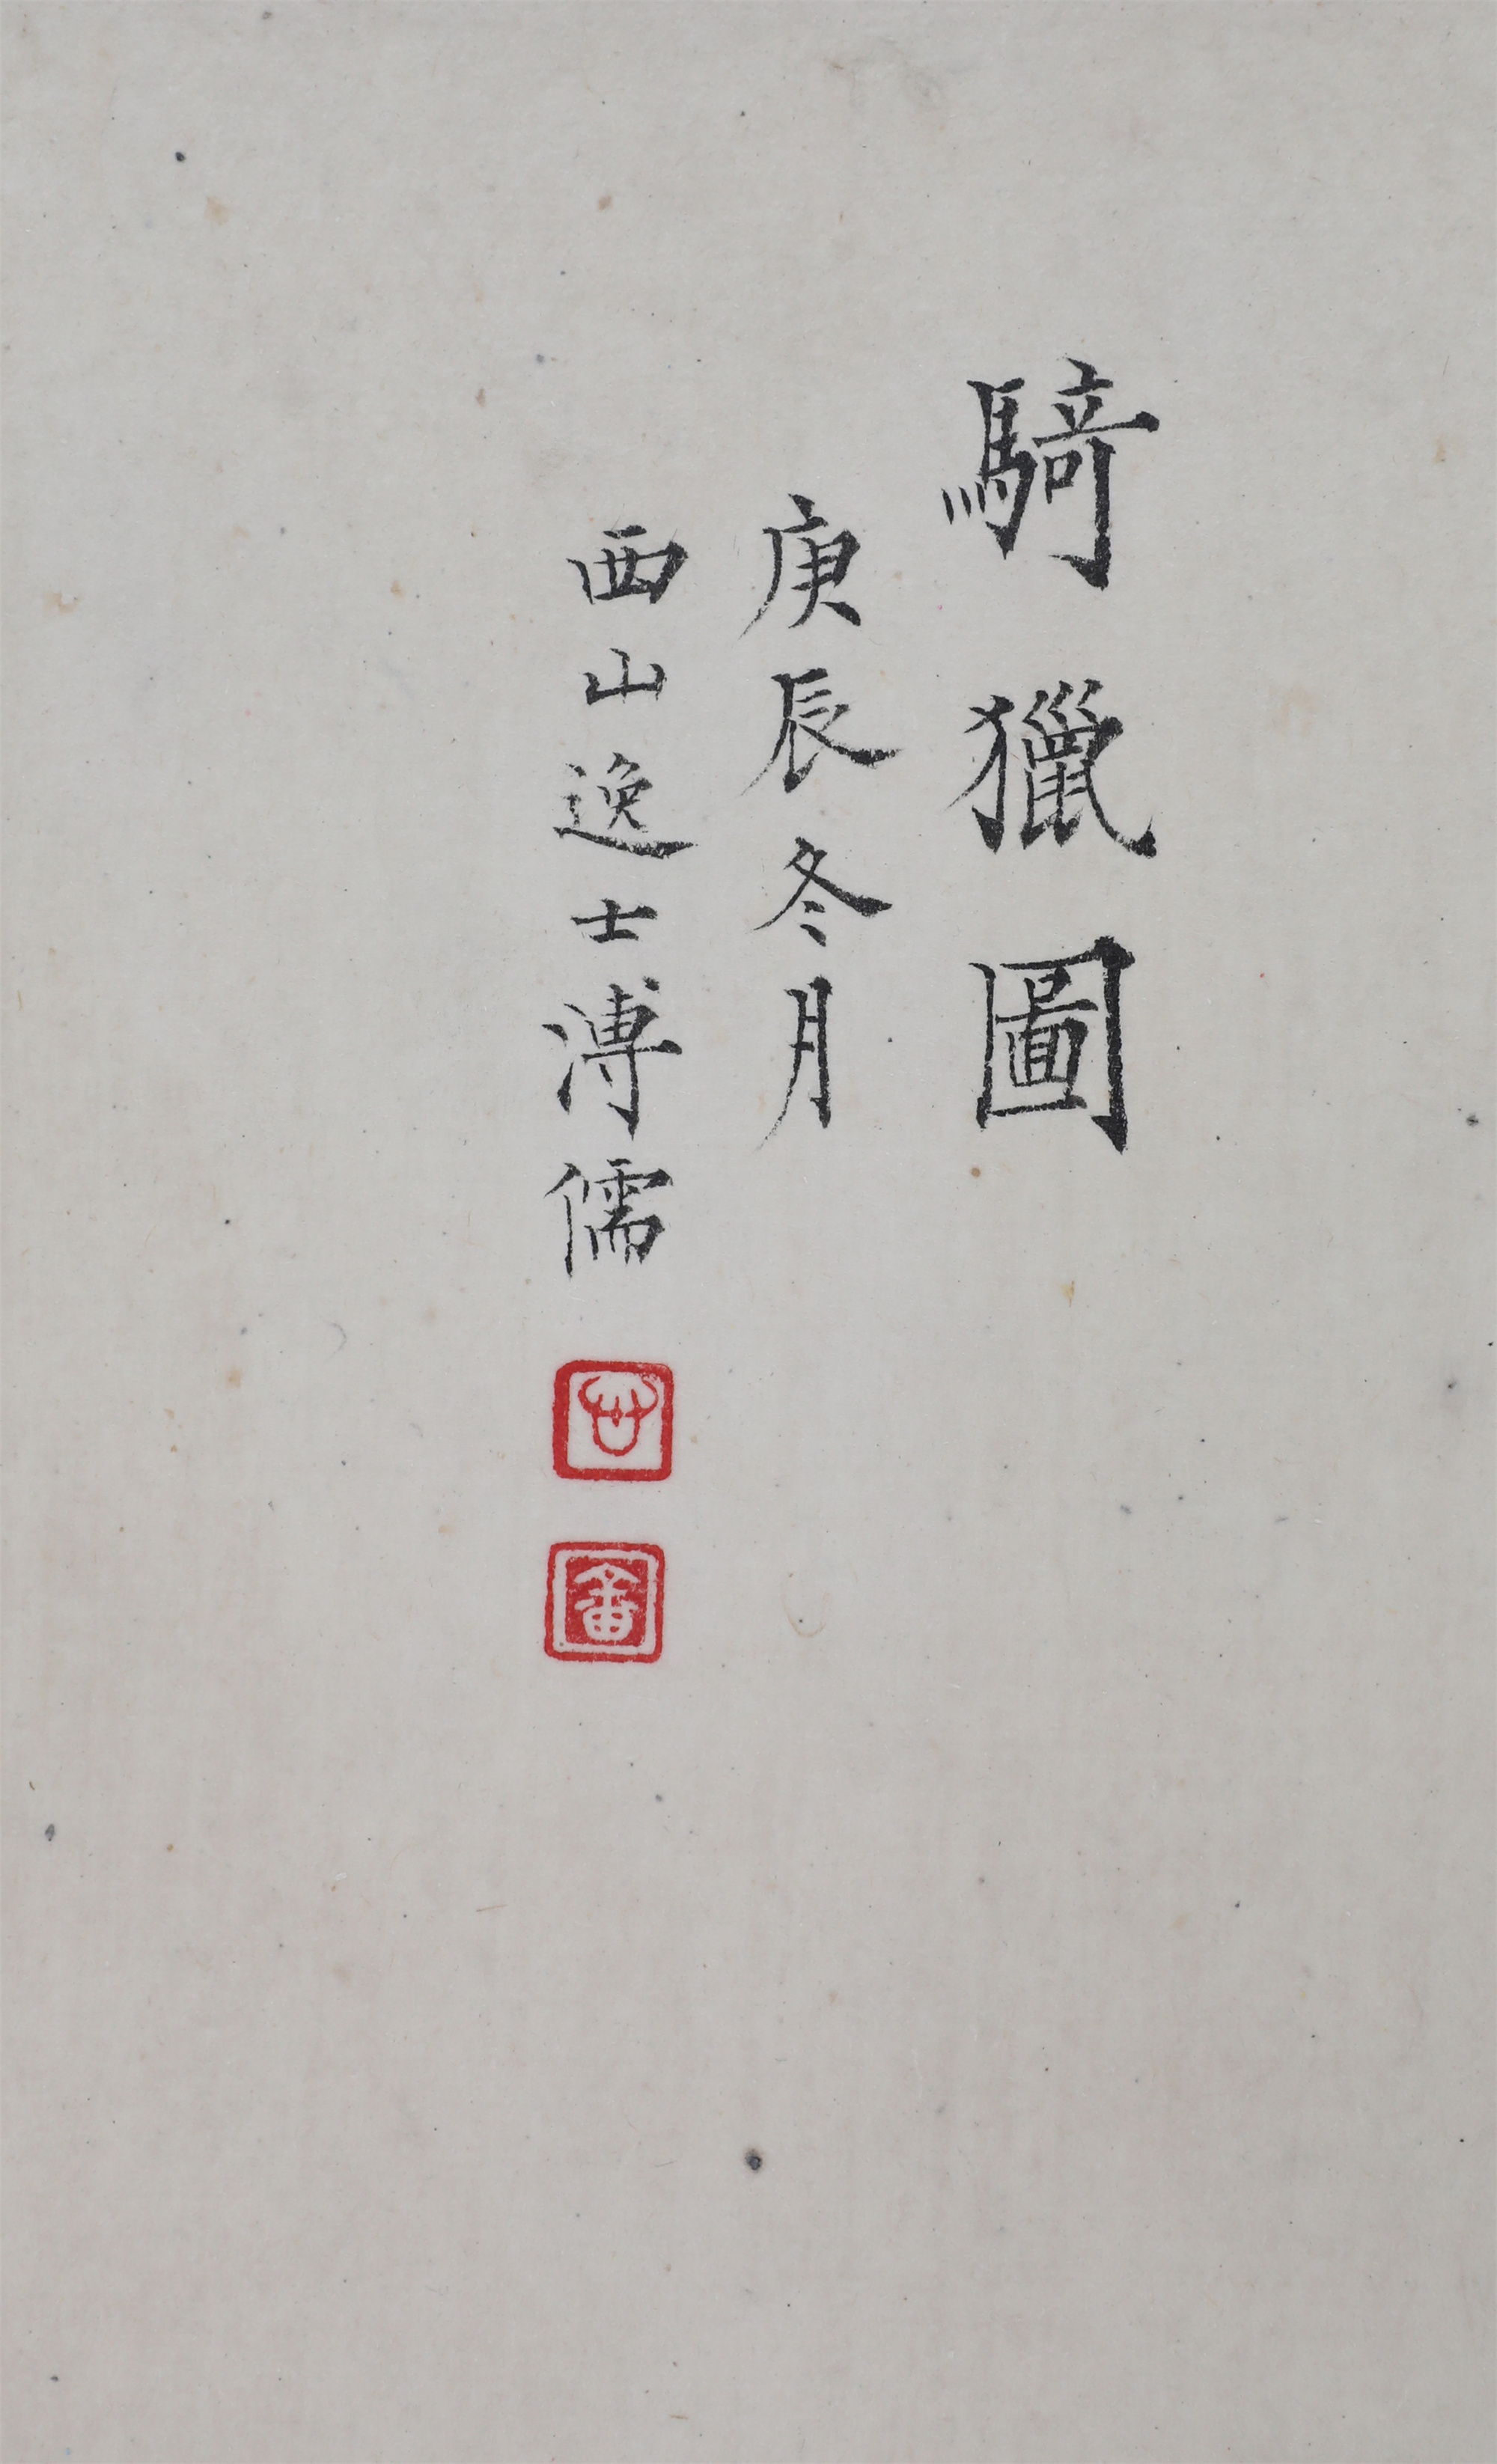 騎獵圖
庚辰冬月
西山逸士溥儒